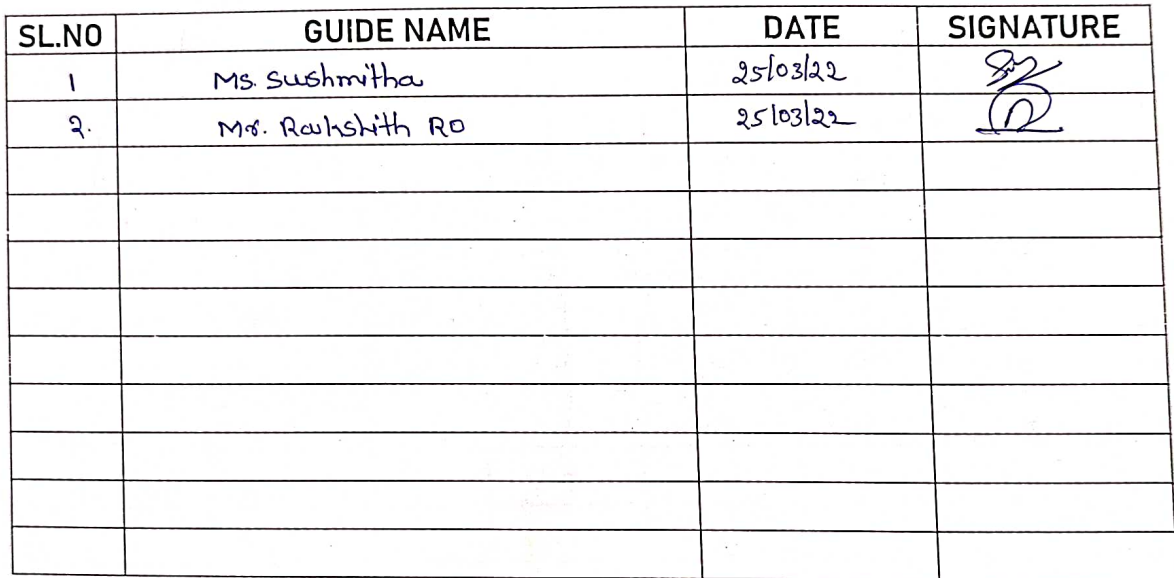 SL.NO GUIDE NAME DATE SIGNATURE
1 Ms. Sushmitha 25/03/22
2. Mr. Rakshith RO 25/03/22